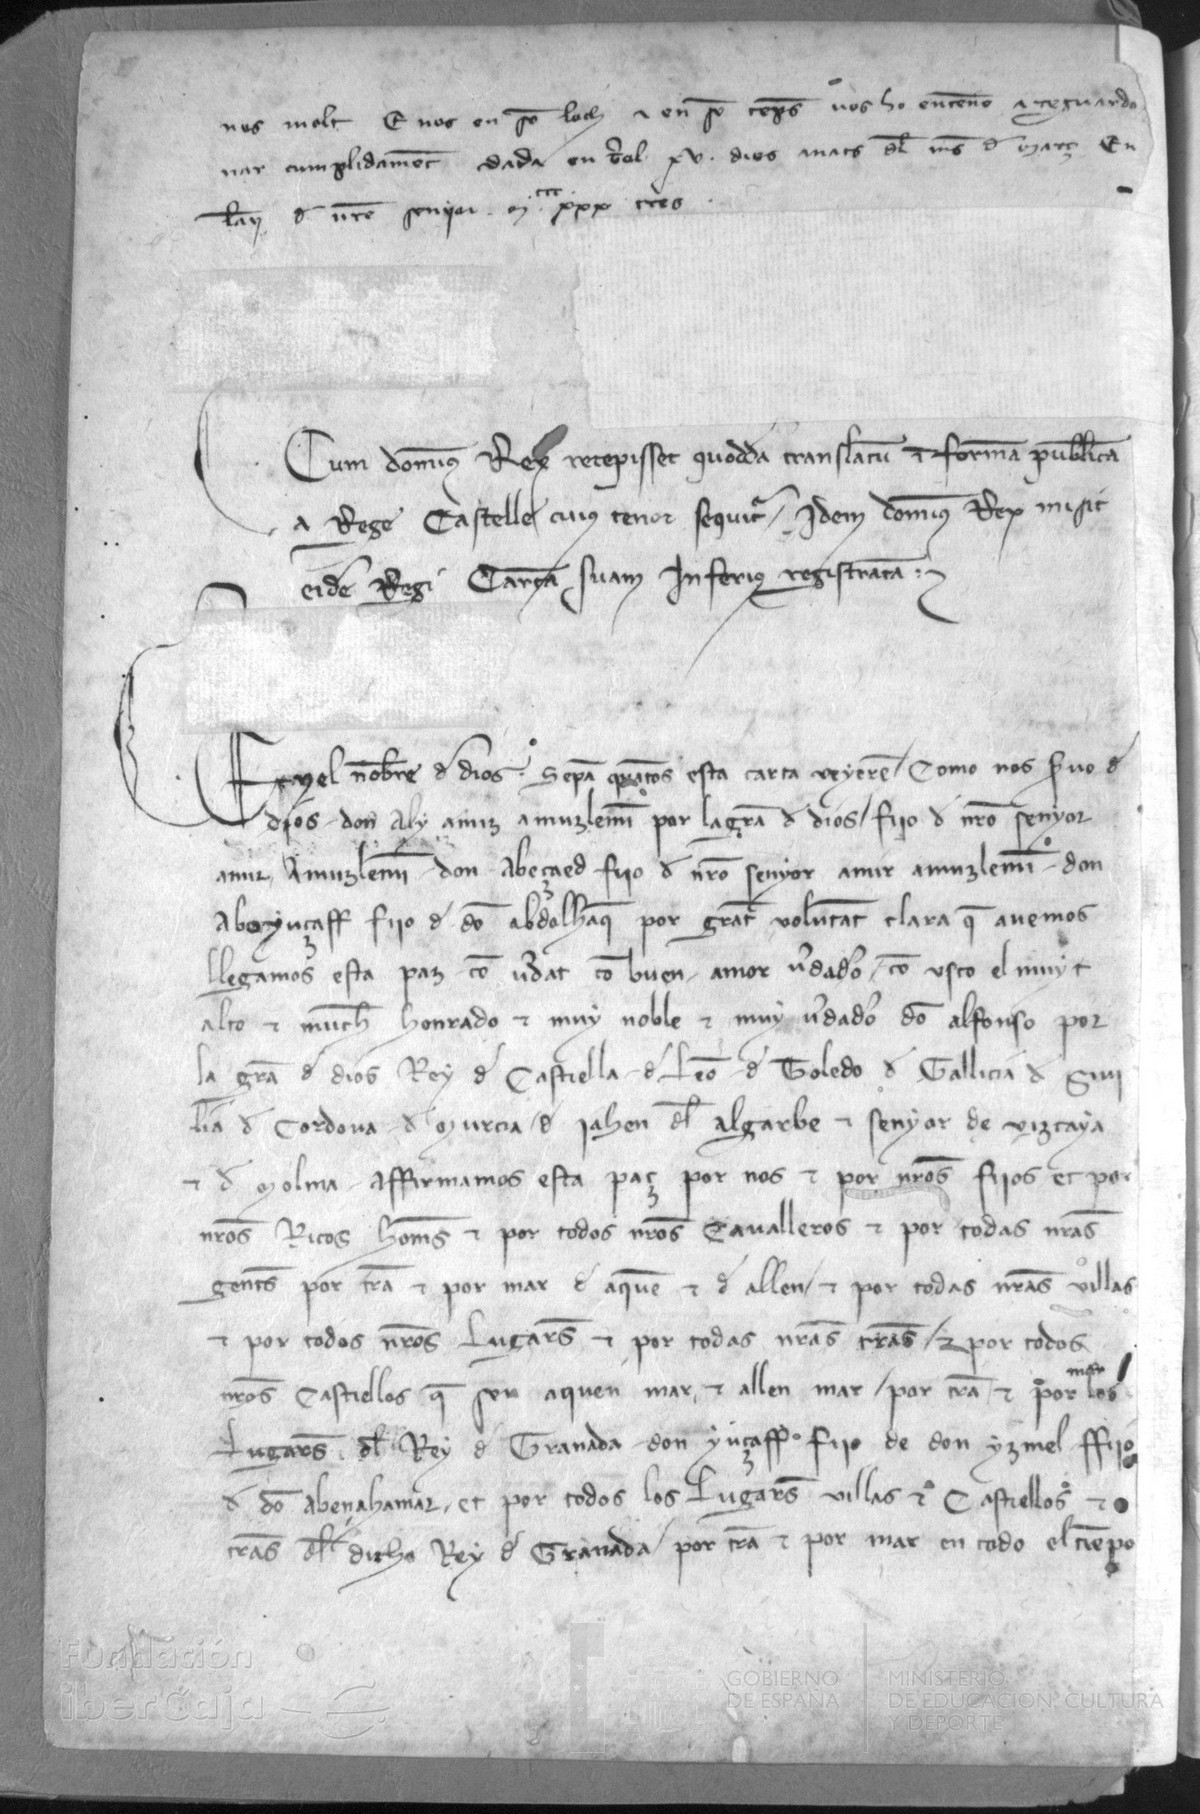 nos molt E nos en so loch & en so temps vos ho entene & reguardo
nar cumplidament dada en Terol xv. dies anats dl mes d març En
lany d nre senyor . m ccc xxx tres .
Cum domins Rex recepisset quodda translatu & forma publica
a Rege Castelle cuius tenor sequitr / Idem domins Rex misit
eide Regi Carta suam Inferius registrata :
En el nobre d dios . Sepa quatos esta carta veyere / Como nos servo d
dios - don Aly amir amuzlemi por la gra d dios / fijo d nro senyor
amir Amuzlemi - don Abeçaed fijo d nro senyor amir amuzlemi - don
Aboyuçaff fijo d do abdolhaq por grat volutat clara q avemos
llegamos esta paz co vdat co buen - amor vdado / co vsco el muyt
alto & much honrado & muy noble & muy vdado do alfonso por
la gra d dios Rey d Castiella - d Leo - d Toledo d Gallicia d Sivi
lia d Cordova - d Murcia / d Iahen dl algarbe & senyor de vizcaya
& d Molina - Affirmamos esta paç por nos & por nros fijos et por
nros Ricos homs & por todos nros Cavalleros & por todas nras
gents por tra & por mar d aque & d allen / & por todas nras villas
& por todos nros Lugars & por todas nras tras / & por todos
nros Castiellos q sen aquen mar & allen mar / por tra & por los
Lugars dl Rey d Granada don yuçaff fijo de don yzmel ffijo
d do Abenahamar - et por todos los Lugars villas & Castiellos &
tras dl dicho Rey d Granada / por tra & por mar en todo el tiempo
Fundación
iberCaja
GOBIERNO
DE ESPAÑA
MINISTERIO
DE EDUCACIÓN, CULTURA
Y DEPORTE